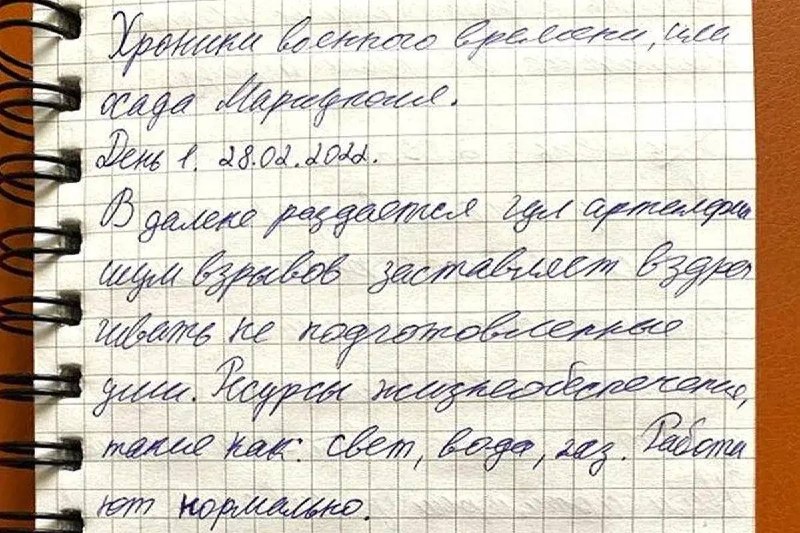 Хроники военного времени, или
осада Мариуполя.
День 1. 28.02.2022.
В далеке раздается гул артелерии
шум взрывов заставляет вздра
гивать не подготовленные
уши. Ресурсы жизнеобеспечения,
такие как: свет, вода, газ. Работа
ют нормально.